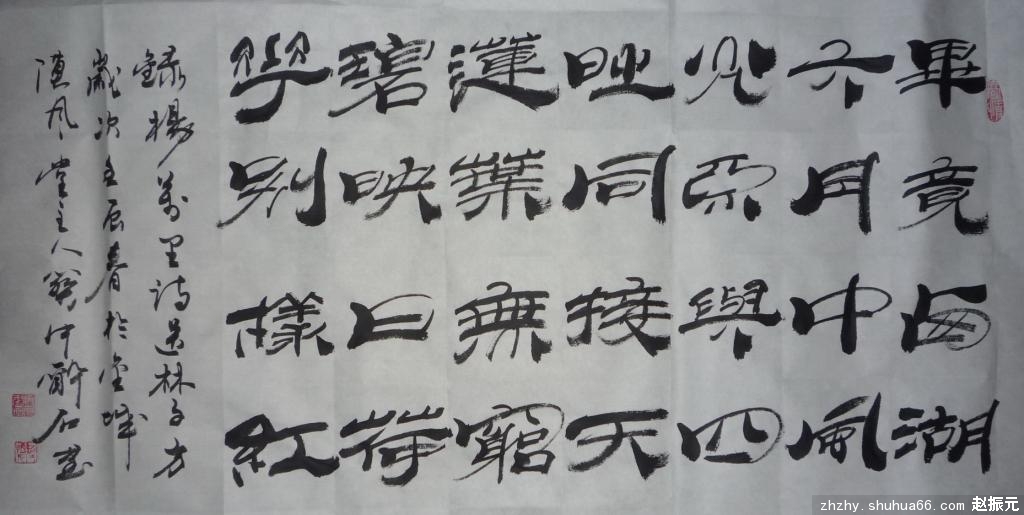 畢竟西湖
六月中風
光不與四
時同接天
蓮葉無窮
碧映日荷
花別樣紅
錄楊萬里詩送林子方
歲次壬辰春於金城
風堂主人中石書
zhzhy.shuhua66.com 赵振元